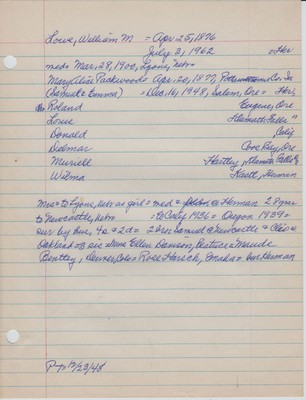 Lowe, William M = Apr 25, 1876
July 2, 1962 = Her
med = Mar. 28, 1900, Lyons, Nebr =
Mary Alice Packwood = Apr. 20, 1877, Co. Ia
(Samuel & Emma) = Dec. 16, 1948, Salem, Ore = Her,
Roland Eugene, Ore
Lowe Klamath Falls "
Donald Calif
Delmar Coos Bay, Ore
Muriell Hartley, Klamath Falls
Wilma Knott, Herman
Mrs = to Lyons, Nebr as girl = med = Herman 28 yrs
to Newcastle, Nebr = to Calif 1936 = Oregon 1939 =
sur by hus, 4s & 2d = 2 bro Samuel @ Newcastle & Cleo @
Oakland = 3 sis Irene Ellen Dawson, Beatrice Maude
Bentley, Denver, Colo = Rose Harsch, Omaha = bur Herman
12/23/48